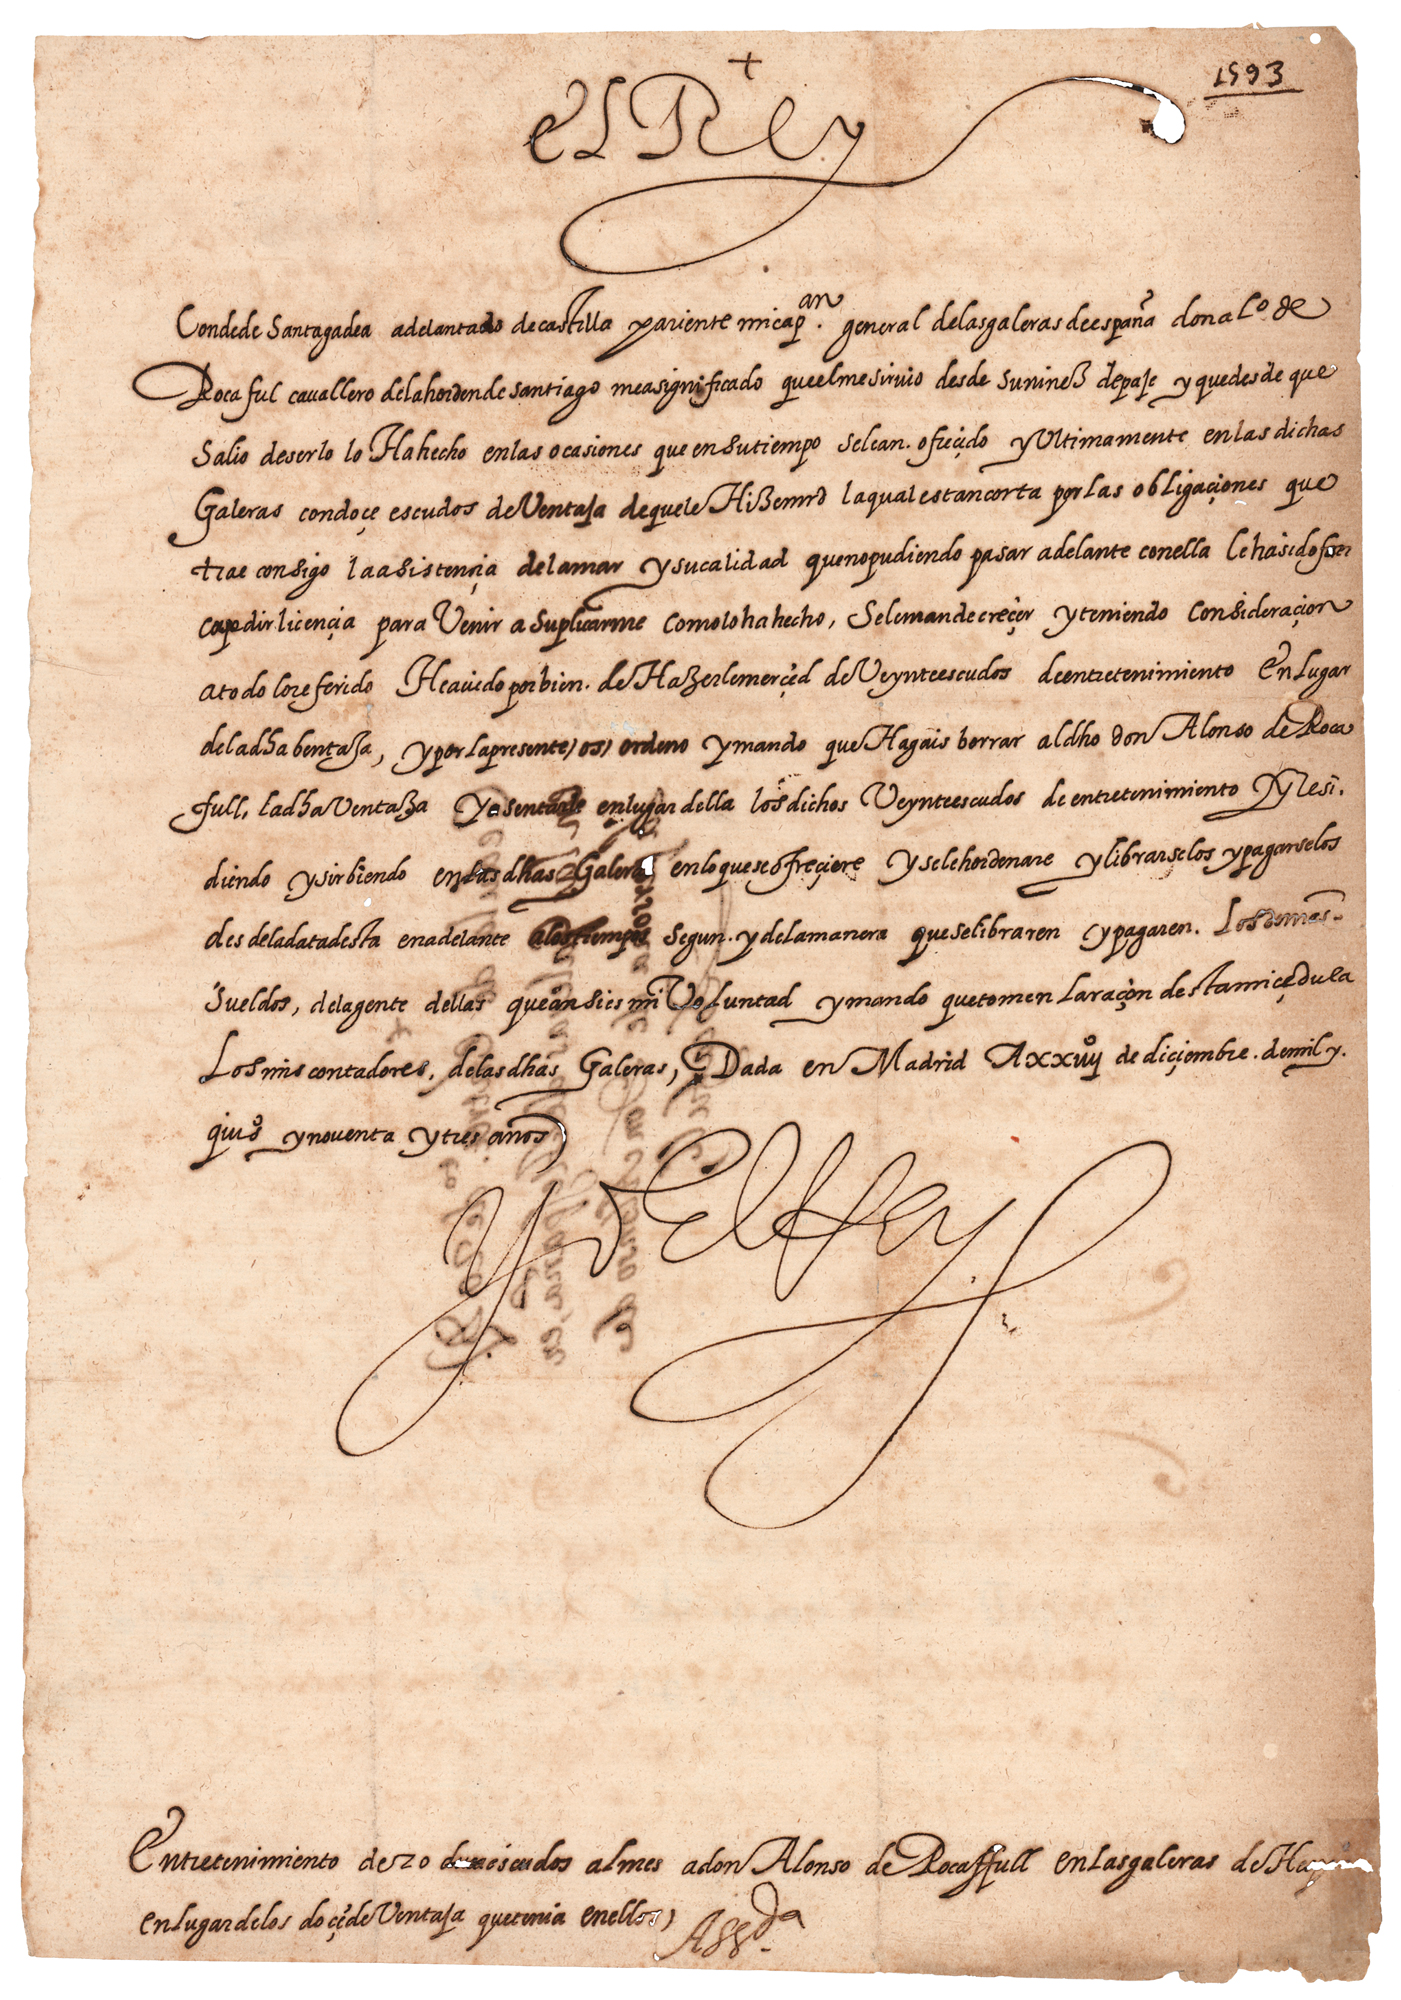 1593
+
el Rey
Conde de Santagadea adelantado de castilla pariente mi cap.an general de las galeras de españa don al.o de
Rocaful cauallero de la horden de santiago me a significado que el me siruio desde su niñeß de paje y que desde que
Salio de serlo lo Ha hecho en las ocasiones que en su tiempo se le an ofreçido y Ultimamente en las dichas
Galeras con doçe escudos de Ventaja de que le Hiße mrd la qual es tan corta por las obligaçiones que
trae consigo la asistençia de la mar y su calidad que no pudiendo pasar adelante con ella le ha sido
pedir liçençia para Venir a suplicarme como lo ha hecho, Se le mande creçer y teniendo consideraçion
a todo lo referido He auido por bien. de Haßerle merçed de Veynte escudos de entretenimiento En lugar
de la dha bentaßa, y por la presente, os, ordeno y mando que Hagais borrar al dho don Alonso de Roca
full, la dha Ventaßa y asentarle en lugar della los dichos Veynte escudos de entretenimiento Resi.
diendo y sirbiendo en las dhas Galeras en lo que se ofreçiere y se le hordenare y librarselos y pagarselos
desde la data desta en adelante a los tiempos Segun. y de la manera que se libraren y pagaren. Los demas
Sueldos, de la gente dellas que ansi es mi Voluntad y mando que tomen La raçon desta mi çedula
Los mis contadores, de las dhas Galeras, Dada en Madrid A xxuiijº de diçiembre. de mil y.
quiºs y nouenta y tres años
Yo El Rey
Entretenimiento de 20 escudos al mes a don Alonso de Rocaffull en las galeras de
en lugar de los doçe de Ventaja que tenia en ellas,